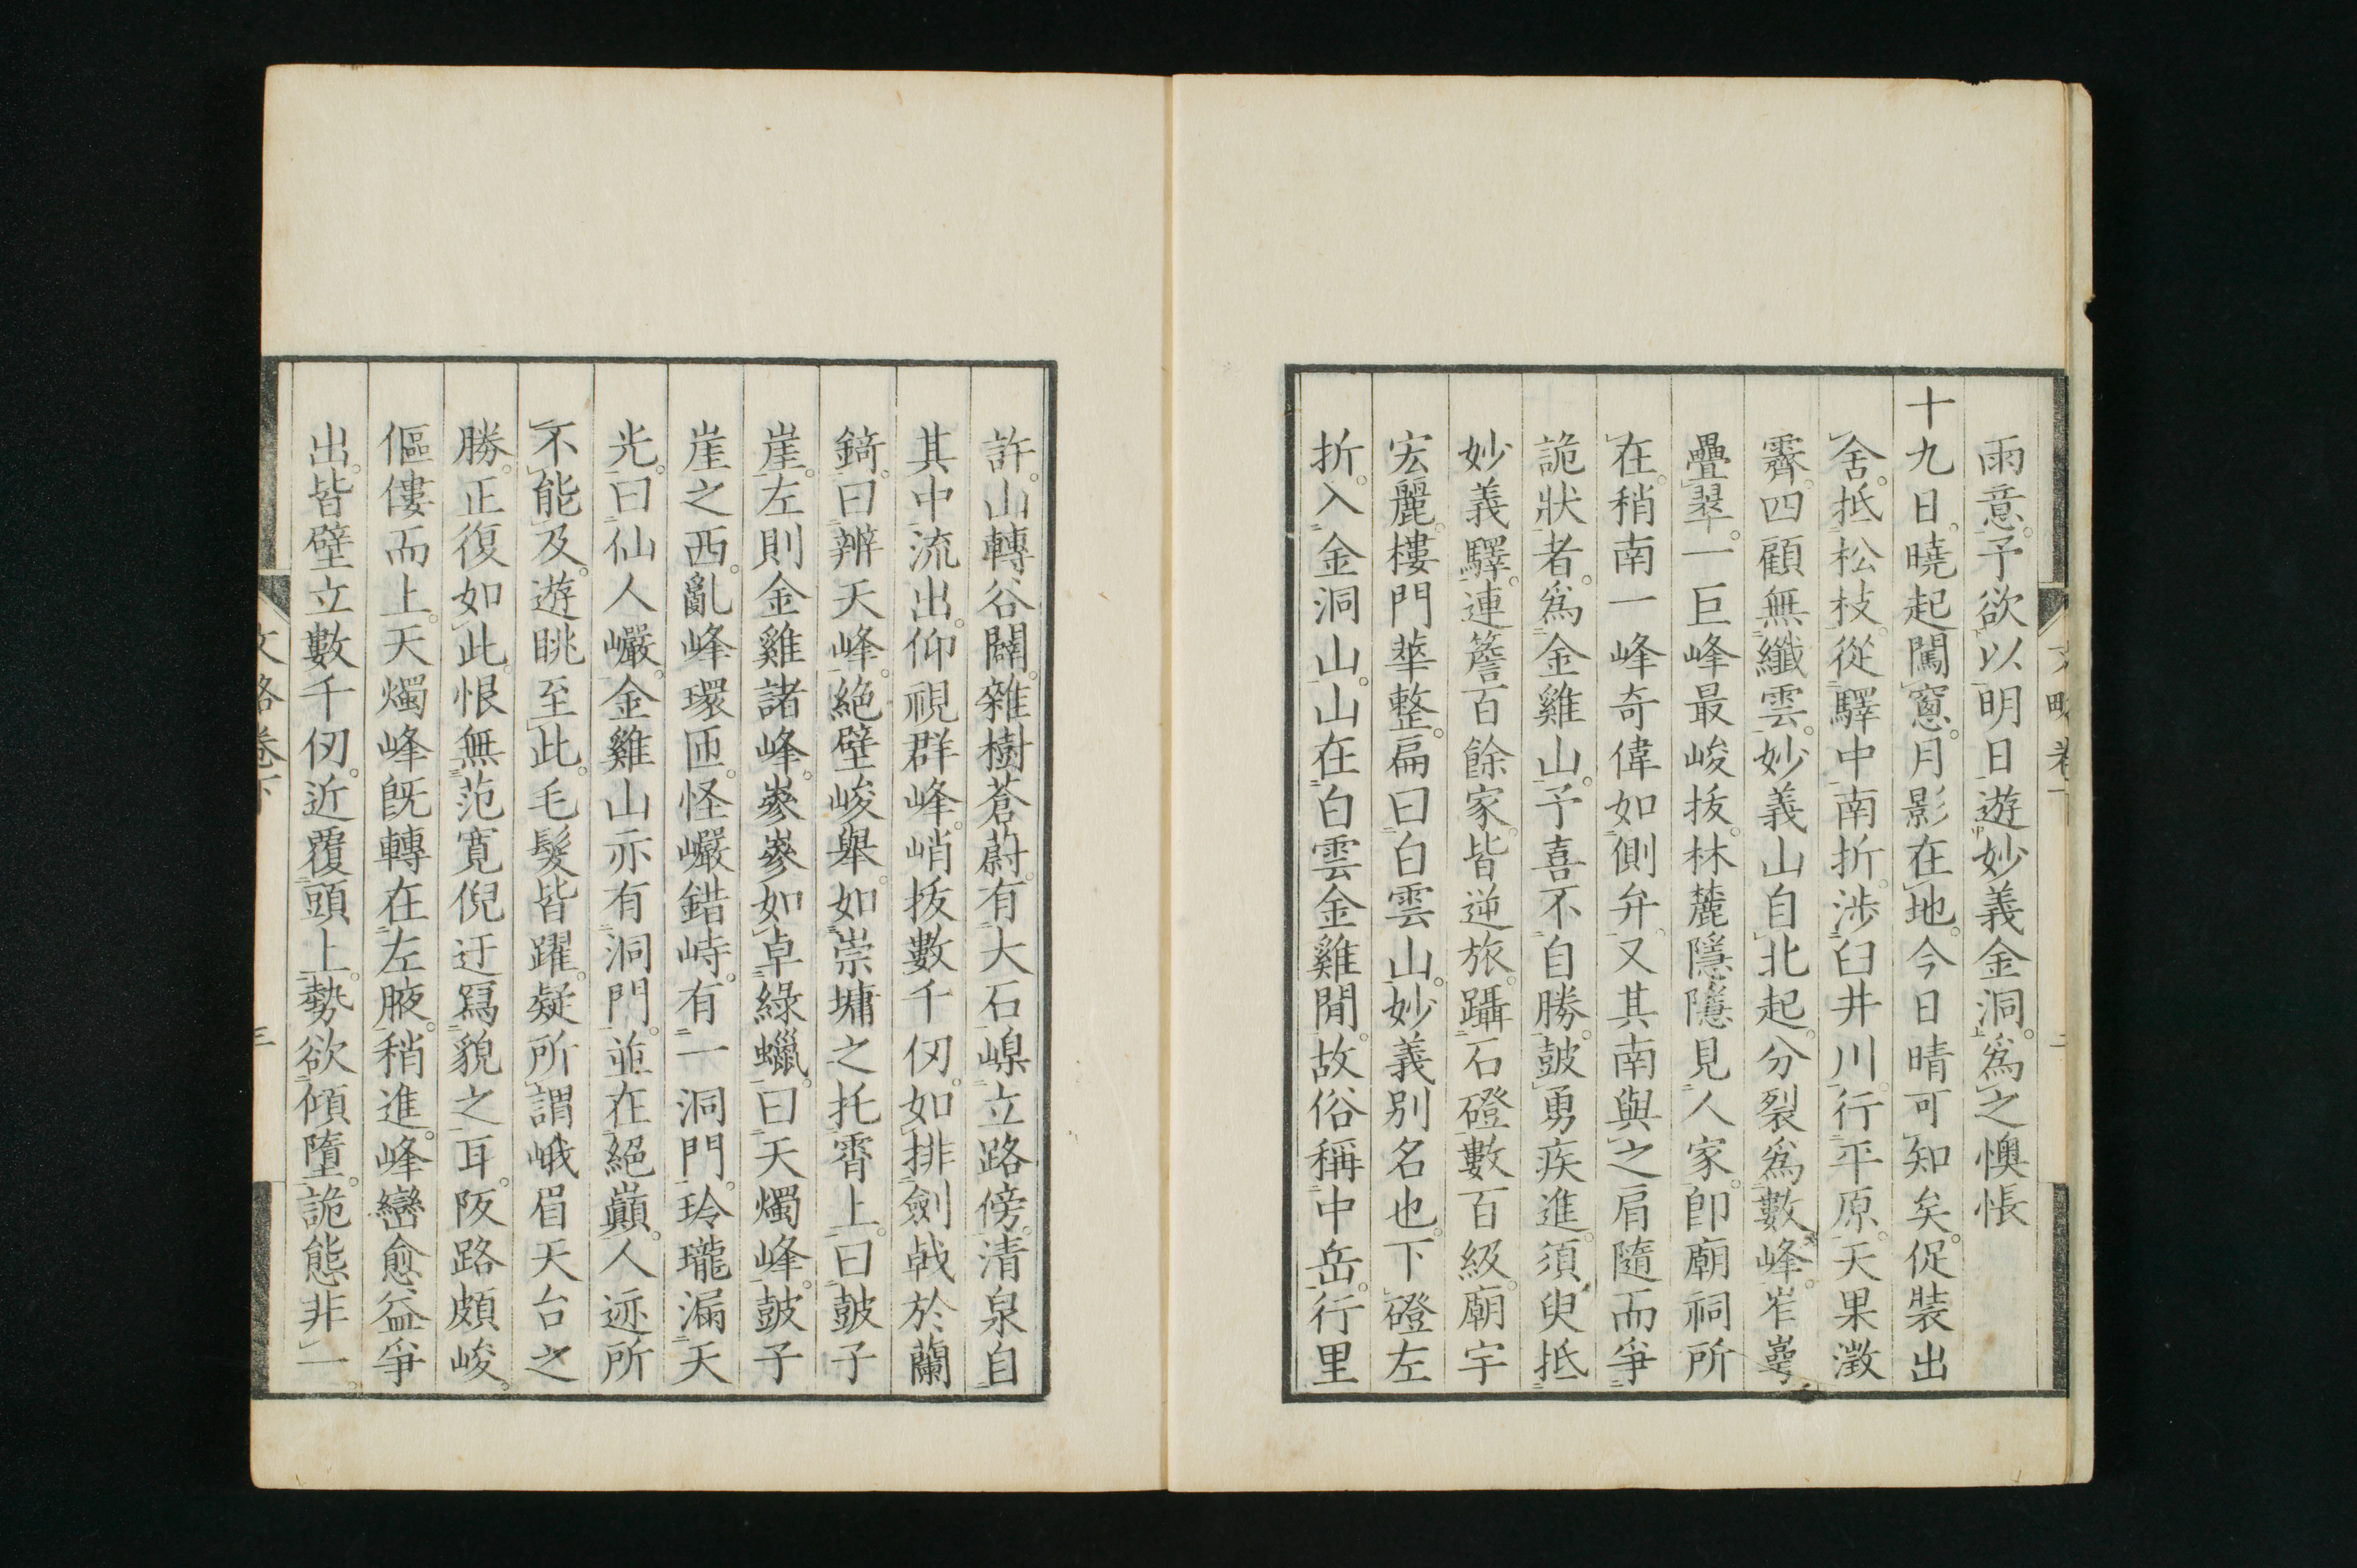 雨意。予欲以明日遊妙義金洞。爲之懊悵
十九日。曉起闖窻。月影在地。今日晴可知矣。促裝出
舍。抵松枝。從驛中南折。渉臼井川。行平原。天果澂
霽。四顧無纖雲。妙義山自北起。分裂爲數峰。岝崿
疊翠。一巨峰最峻拔。林麓隱隱見人家。卽廟祠所
在。稍南一峰奇偉如側弁。又其南與之肩隨而爭
詭狀者。爲金雞山。予喜不自勝。皷勇疾進。須臾抵
妙義驛。連簷百餘家。皆逆旅。躡石磴數百級。廟宇
宏麗。樓門華整。扁曰白雲山。妙義別名也。下磴左
折。入金洞山。山在白雲金雞閒。故俗稱中岳。行里
許。山轉谷闢。雜樹蒼蔚。有大石嵲立路傍。清泉自
其中流出。仰視群峰。峭拔數千仭。如排劍戟於蘭
錡。曰辨天峰。絕壁峻舉。如崇墉之托霄上。曰皷子
崖。左則金雞諸峰。嵾嵾如卓綠蠟。曰天燭峰。皷子
崖之西。亂峰環匝。怪巗錯峙。有一洞門。玲瓏漏天
光。曰仙人巗。金雞山亦有洞門。並在絕巓。人迹所
不能及。遊眺至此。毛髮皆躍。疑所謂峨眉天台之
勝。正復如此。恨無范寛倪迂寫貌之耳。阪路頗峻。
傴僂而上。天燭峰旣轉在左腋。稍進。峰巒愈益爭
出。皆壁立數千仭。近覆頭上。勢欲傾墮。詭態非一。
文略卷下
三